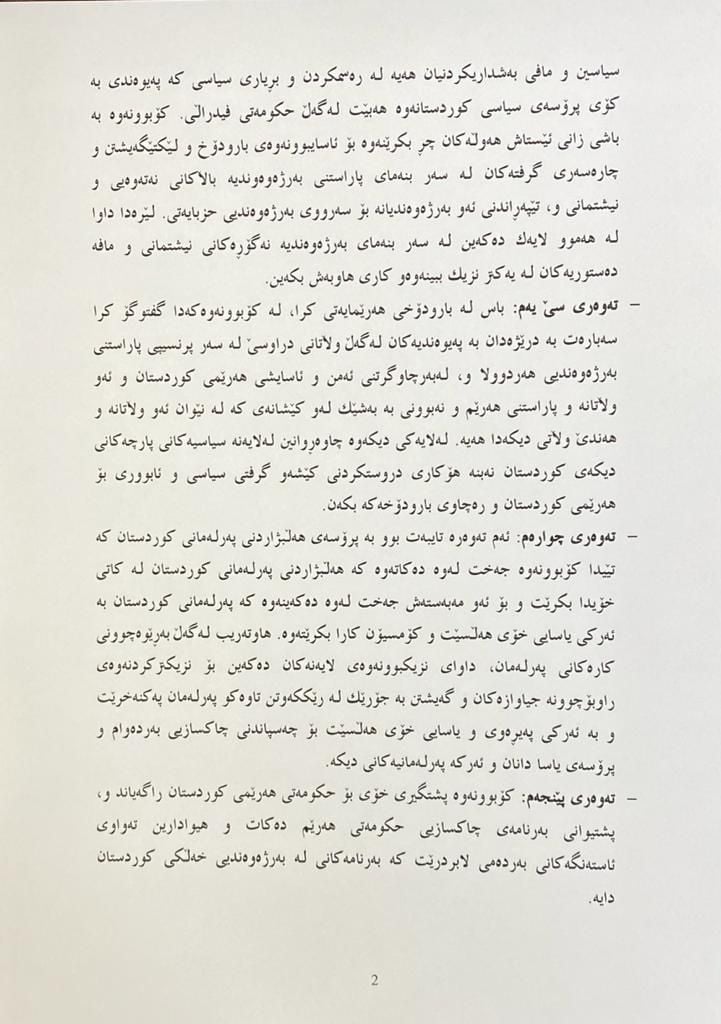 سیاسین و مافی بەشداریکردنیان هەیە لە رەسمکردن و بڕیاری سیاسی کە پەیوەندی بە
کۆی پرۆسەی سیاسی کوردستانەوە هەبێت لەگەڵ حکومەتی فیدراڵی. کۆبوونەوە بە
باشی زانی ئێستاش هەوڵەکان چڕ بکرێنەوە بۆ ئاساییبوونەوەی بارودۆخ و لێکتێگەیشتن و
چارەسەری گرفتەکان لە سەر بنەمای پاراستنی بەرژەوەوندیە بالاکانی نەتەوەیی و
نیشتمانی و، تێپەڕاندنی ئەو بەرژەوەندیانە بۆ سەرووی بەرژەوەندیی حزبایەتی. لێرەدا داوا
لە هەموو لایەك دەکەین لە سەر بنەمای بەرژەوەندیە نەگۆڕەکانی نیشتمانی و مافە
دەستوریەکان لە یەکتر نزیك ببینەوەو کاری هاوبەش بکەین.
– تەوەری سێ یەم: باس لە بارودۆخی هەرێمایەتی کرا، لە کۆبوونەوەکەدا گفتوگۆ کرا
سەبارەت بە درێژەدان بە پەیوەندیەکان لەگەڵ ولآتانی دراوسێ لە سەر پرنسیپی پاراستنی
بەرژەوەندیی هەردوولا و، لەبەرچاوگرتنی ئەمن و ئاسایشی هەرێمی کوردستان و ئەو
ولآتانە و پاراستنی هەرێم و نەبوونی بە بەشێك لەو کێشانەی کە لە نێوان ئەو ولآتانە و
هەندێ ولآتی دیکەدا هەیە. لەلایەکی دیکەوە چاوەڕوانین لەلایەنە سیاسیەکانی پارچەکانی
دیکەی کوردستان نەبنە هۆکاری دروستکردنی کێشەو گرفتی سیاسی و ئابووری بۆ
هەرێمی کوردستان و رەچاوی بارودۆخەکە بکەن.
– تەوەری چوارەم: ئەم تەوەرە تایبەت بوو بە پرۆسەی هەڵبژاردنی پەرلەمانی کوردستان کە
تێیدا کۆبوونەوە جەخت لەوە دەکاتەوە کە هەڵبژاردنی پەرلەمانی کوردستان لە کاتی
خۆیدا بکرێت و بۆ ئەو مەبەستەش جەخت لەوە دەکەینەوە کە پەرلەمانی کوردستان بە
ئەرکی یاسایی خۆی هەڵسێت و کۆمسیۆن کارا بکرێتەوە. هاوتەریب لەگەڵ بەرێوەچوونی
کارەکانی پەرلەمان، داوای نزیکبوونەوەی لایەنەکان دەکەین بۆ نزیکترکردنەوەی
راوبۆچوونە جیاوازەکان و گەیشتن بە جۆرێك لە رێککەوتن تاوەکو پەرلەمان پەکنەخرێت
و بە ئەرکی پەیرەوی و یاسایی خۆی هەڵسێت بۆ چەسپاندنی چاکسازیی بەردەوام و
پرۆسەی یاسا دانان و ئەرکە پەرلەمانیەکانی دیکە.
– تەوەری پێنجەم: کۆبوونەوە پشتگیری خۆی بۆ حکومەتی هەرێمی کوردستان راگەیاند و،
پشتیوانی بەرنامەی چاکسازیی حکومەتی هەرێم دەکات و هیوادارین تەواوی
ئاستەنگەکانی بەردەمی لابردرێت کە بەرنامەکانی لە بەرژەوەندیی خەڵکی کوردستان
دایە.
2